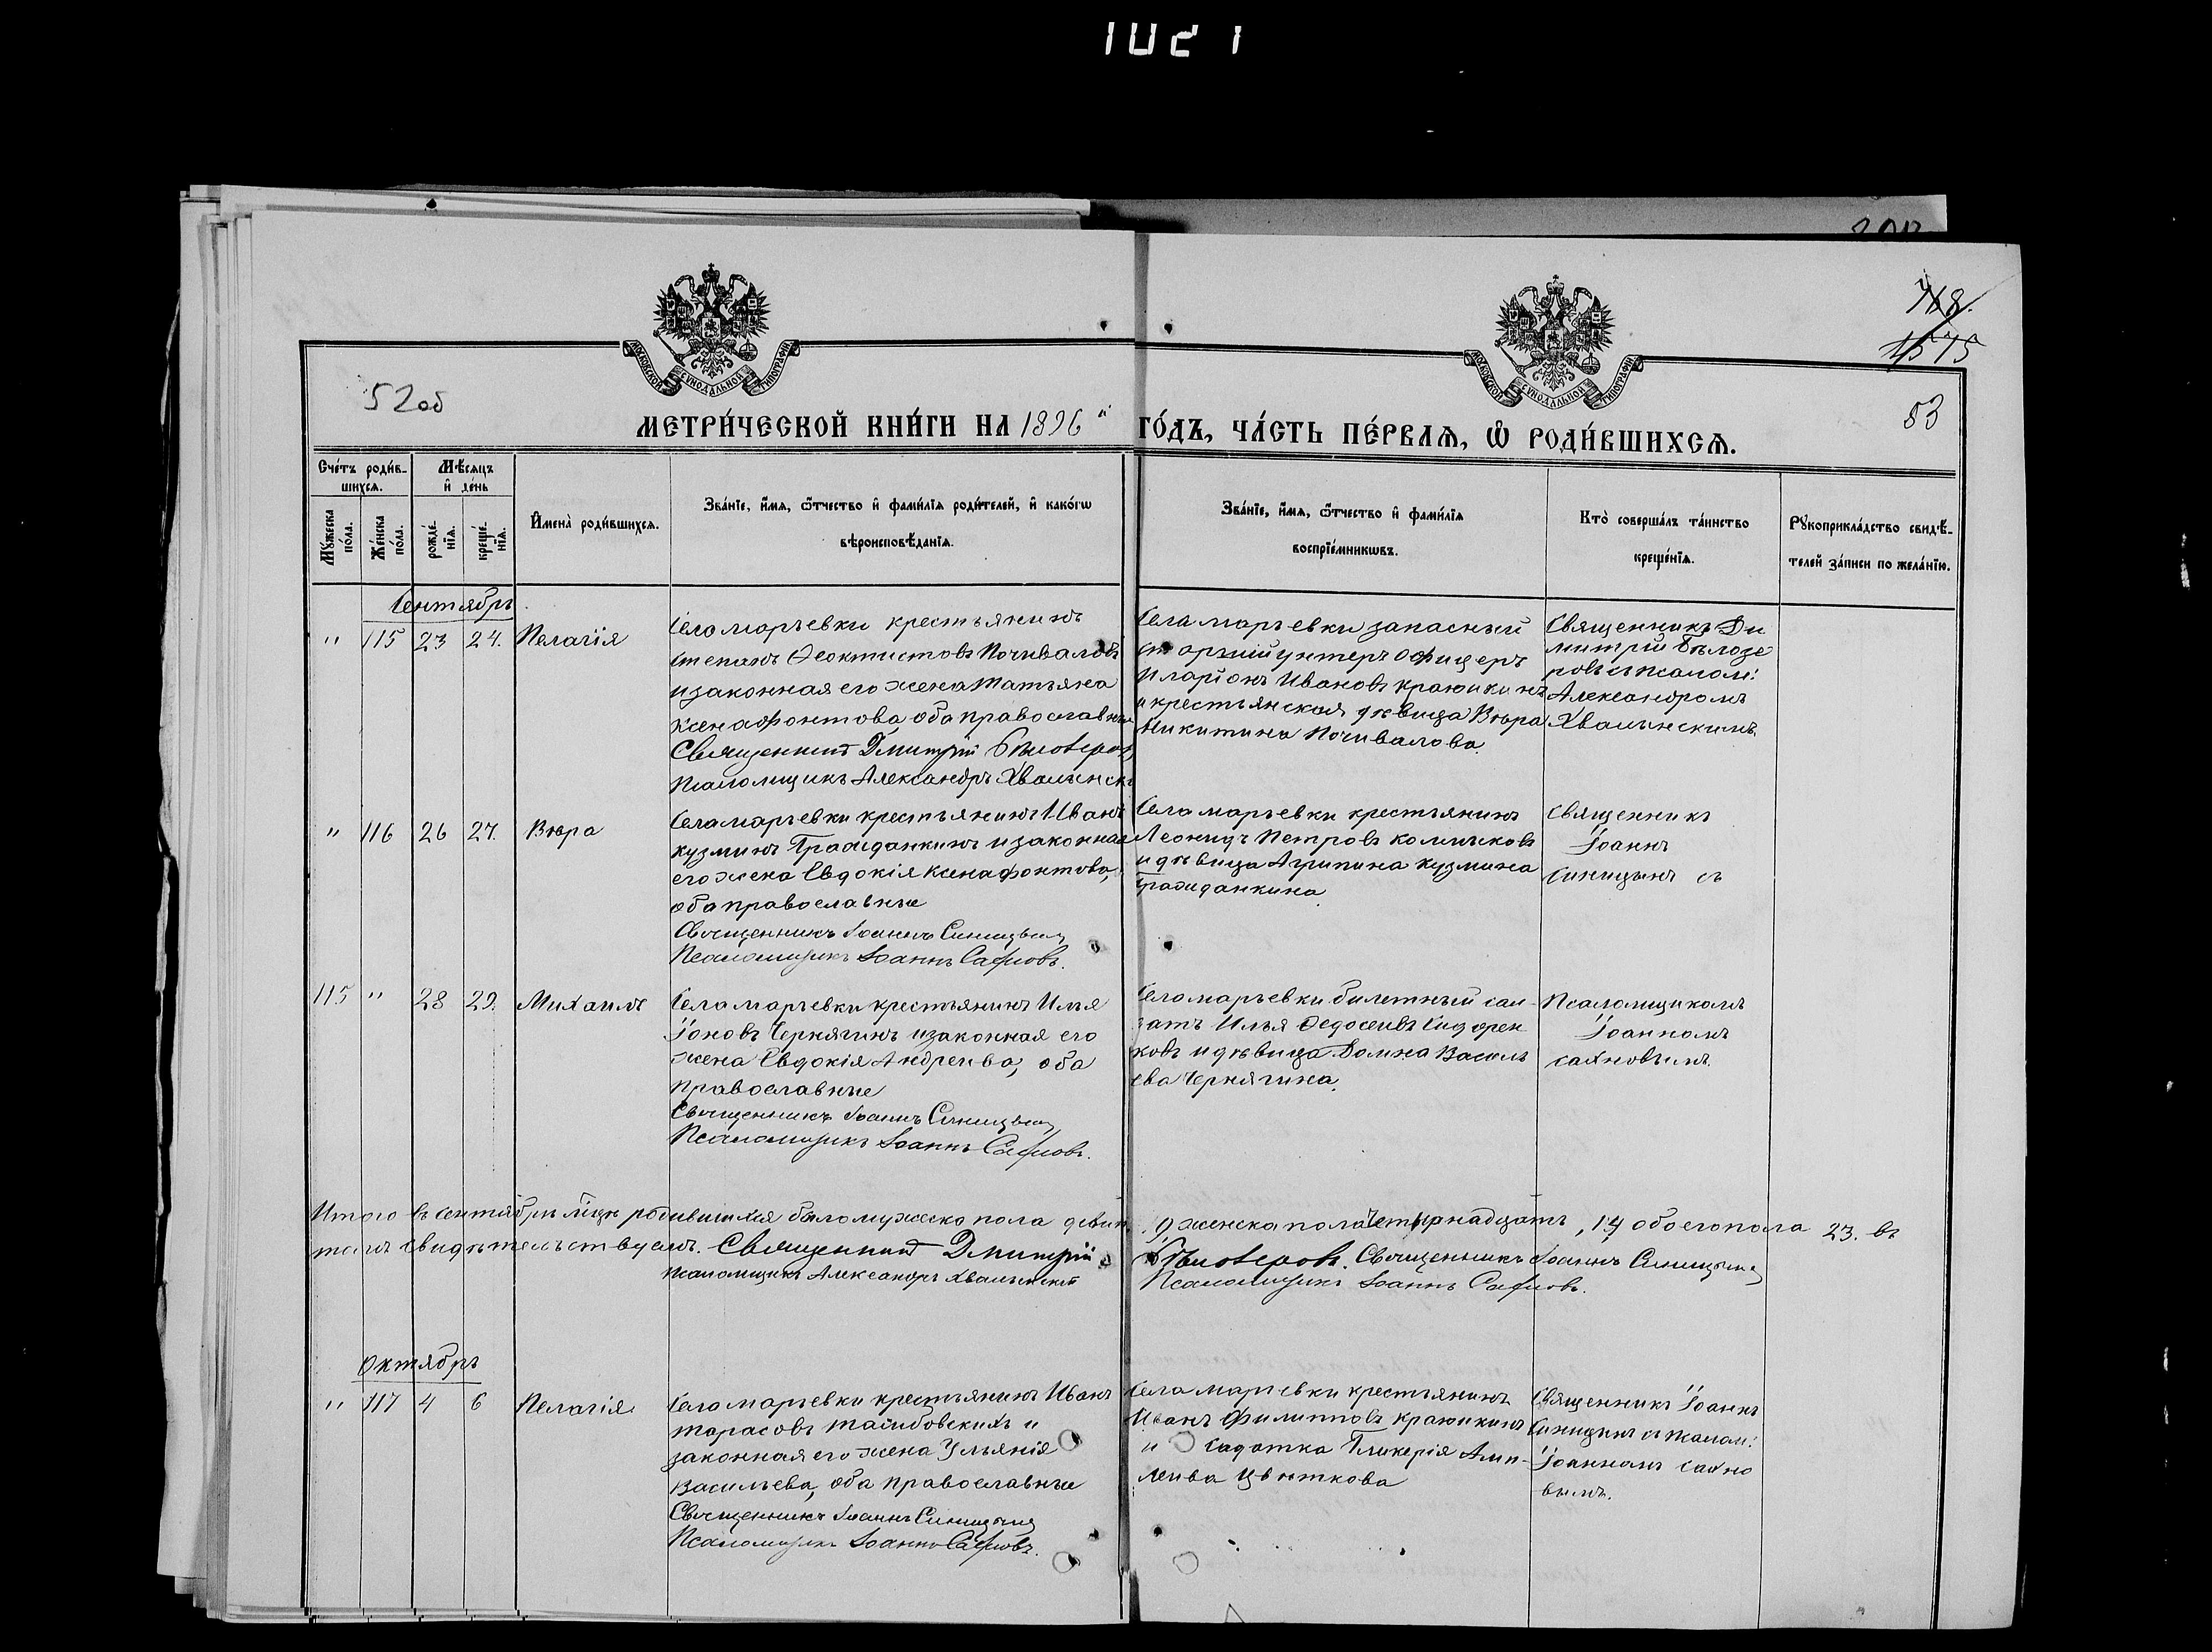 1021
МОСКОВСКОЙ СѴНОДАЛЬНОЙ ТИПОГРАФІИ
МОСКОВСКОЙ СѴНОДАЛЬНОЙ ТИПОГРАФІИ
1575
52об
83
МЕТРИ́ЧЕСКОЙ КНИ́ГИ НА 1896 ГО́ДЪ, ЧА́СТЬ ПЕ́РВАѦ, Ѡ҆ РОДИ́ВШИХСѦ.
Сче́тъ роди́в-
шихсѧ.
Мѣ́сѧцъ
и҆ де́нь
Мꙋ́жеска по́ла.
Же́нска по́ла.
рожде́нїѧ.
креще́нїѧ.
И҆мена̀ роди́вшихсѧ.
Зва́нїе, и҆́мѧ, ѻ҆́тчество и҆ фами́лїѧ роди́телей, и҆ како́гѡ
вѣроисповѣ́данїѧ.
Зва́нїе, и҆́мѧ, ѻ҆́тчество и҆ фами́лїѧ
воспрїе́мникѡвъ.
Кто̀ соверша́лъ та́инство
креще́нїѧ.
Рꙋкоприкла́дство свидѣ́-
телей за́писи по жела́нїю.
Сентябрь
" 115 23 24. Пелагія
Села марьевки крестьянинъ
Степанъ Ѳеоктистовъ Почиваловъ
и законная его жена Татьяна
Ксенафонтова, оба православные
Священникъ Дмитрій Бѣлозеровъ
Псаломщикъ Александръ Хвалынскі
Села марьевки запасный
старшій унтеръ офицеръ
Иларіонъ Ивановъ Краюшкинъ
и крестьянская дѣвица Вѣра
Никитина Почивалова.
Священникъ Ди
митрій Бѣлозе
ровъ съ псалом:
Александромъ
Хвалынскимъ.
" 116 26 27. Вѣра
Села марьевки крестьянинъ Иванъ
Кузминъ Гражданкинъ и законная
его жена Евдокія Ксенафонтова,
оба православные
Священникъ Іоаннъ Синицынъ
Псаломщикъ Іоаннъ Сахновъ.
Села марьевки крестьянинъ
Леонидъ Петровъ Комльковъ
и дѣвица Агрипина Кузмина
Гражданкина.
Священникъ
Іоаннъ
Синицынъ съ
115 " 28 29. Михаилъ
Села марьевки крестьянинъ Илья
Іоновъ Чернягинъ и законная его
жена Евдокія Андреева, оба
православные
Священникъ Іоаннъ Синицынъ
Псаломщикъ Іоаннъ Сахновъ.
Села марьевки билетный сол-
датъ Илья Ѳедосеевъ Сидорен
ковъ и дѣвица Домна Василь
ева Чернягина.
Псаломщикомъ
Іоанномъ
Сахновымъ.
Итого въ сентябрѣ мцѣ родившихся было мужеска пола девять, 9 женска пола четырнадцать, 14 обоего пола 23. въ
томъ свидѣтельствуемъ. Священникъ Дмитрій Бѣлозеровъ. Священникъ Іоаннъ Синицынъ
Псаломщикъ Александръ Хвалынскій
Псаломщикъ Іоаннъ Сахновъ.
Октябрь
" 117 4 6 Пелагія
Села марьевки крестьянинъ Иванъ
Тарасовъ и
законная его жена Ульянія
Васильева, оба православные
Священникъ Іоаннъ Синицынъ
Псаломщикъ Іоаннъ Сахновъ.
Села марьевки крестьянинъ
Иванъ Филипповъ Краюшкинъ
и Гликерія
Цвѣткова
Священникъ Іоаннъ
Синицынъ съ псалом:
Іоанномъ Сахно
вымъ.